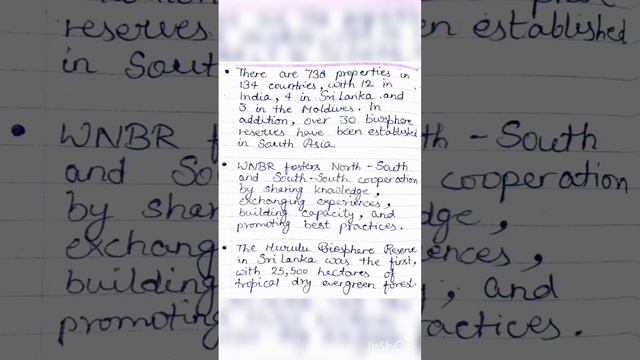 • There are 738 properties in
134 countries, with 12 in
India, 4 in Sri Lanka and
3 in the Maldives. In
addition, over 30 biosphere
reserves have been established
in South Asia
• WNBR fosters North-South
and South-South cooperation
by sharing knowledge,
exchanging experiences,
building capacity, and
promoting best practices.
• The Hurulu Biosphere Reserve
in Sri Lanka was the first,
with 25,500 hectares of
tropical dry evergreen forest.
InShO